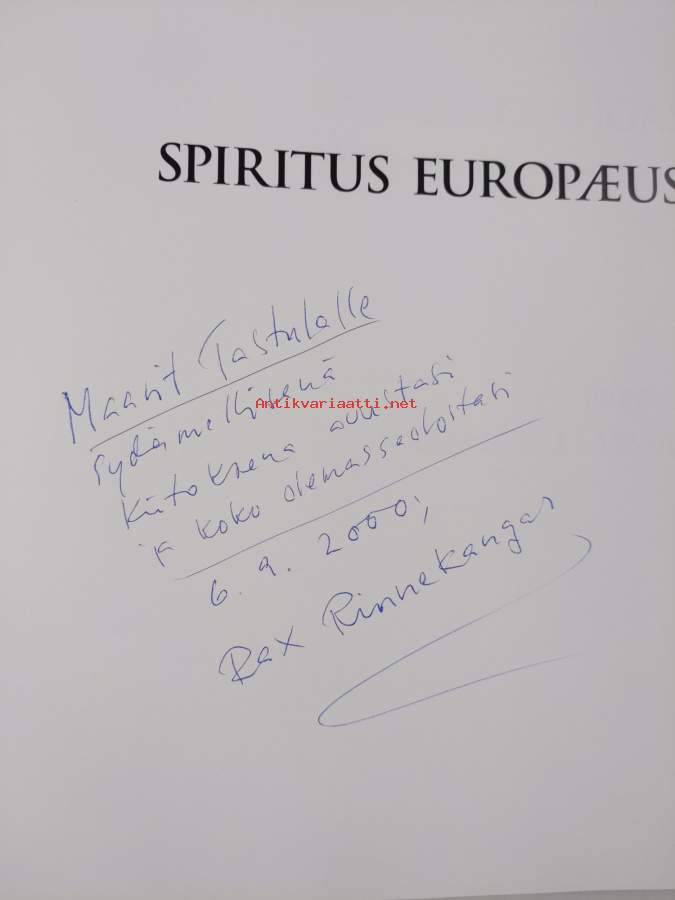 SPIRITUS EUROPÆUS
Maarit Tastulalle
sydämellisenä
Antikvariaatti.net
kiitoksena avustasi
ja koko olemassaolostasi
6.9.2000,
Rax Rinnekangas